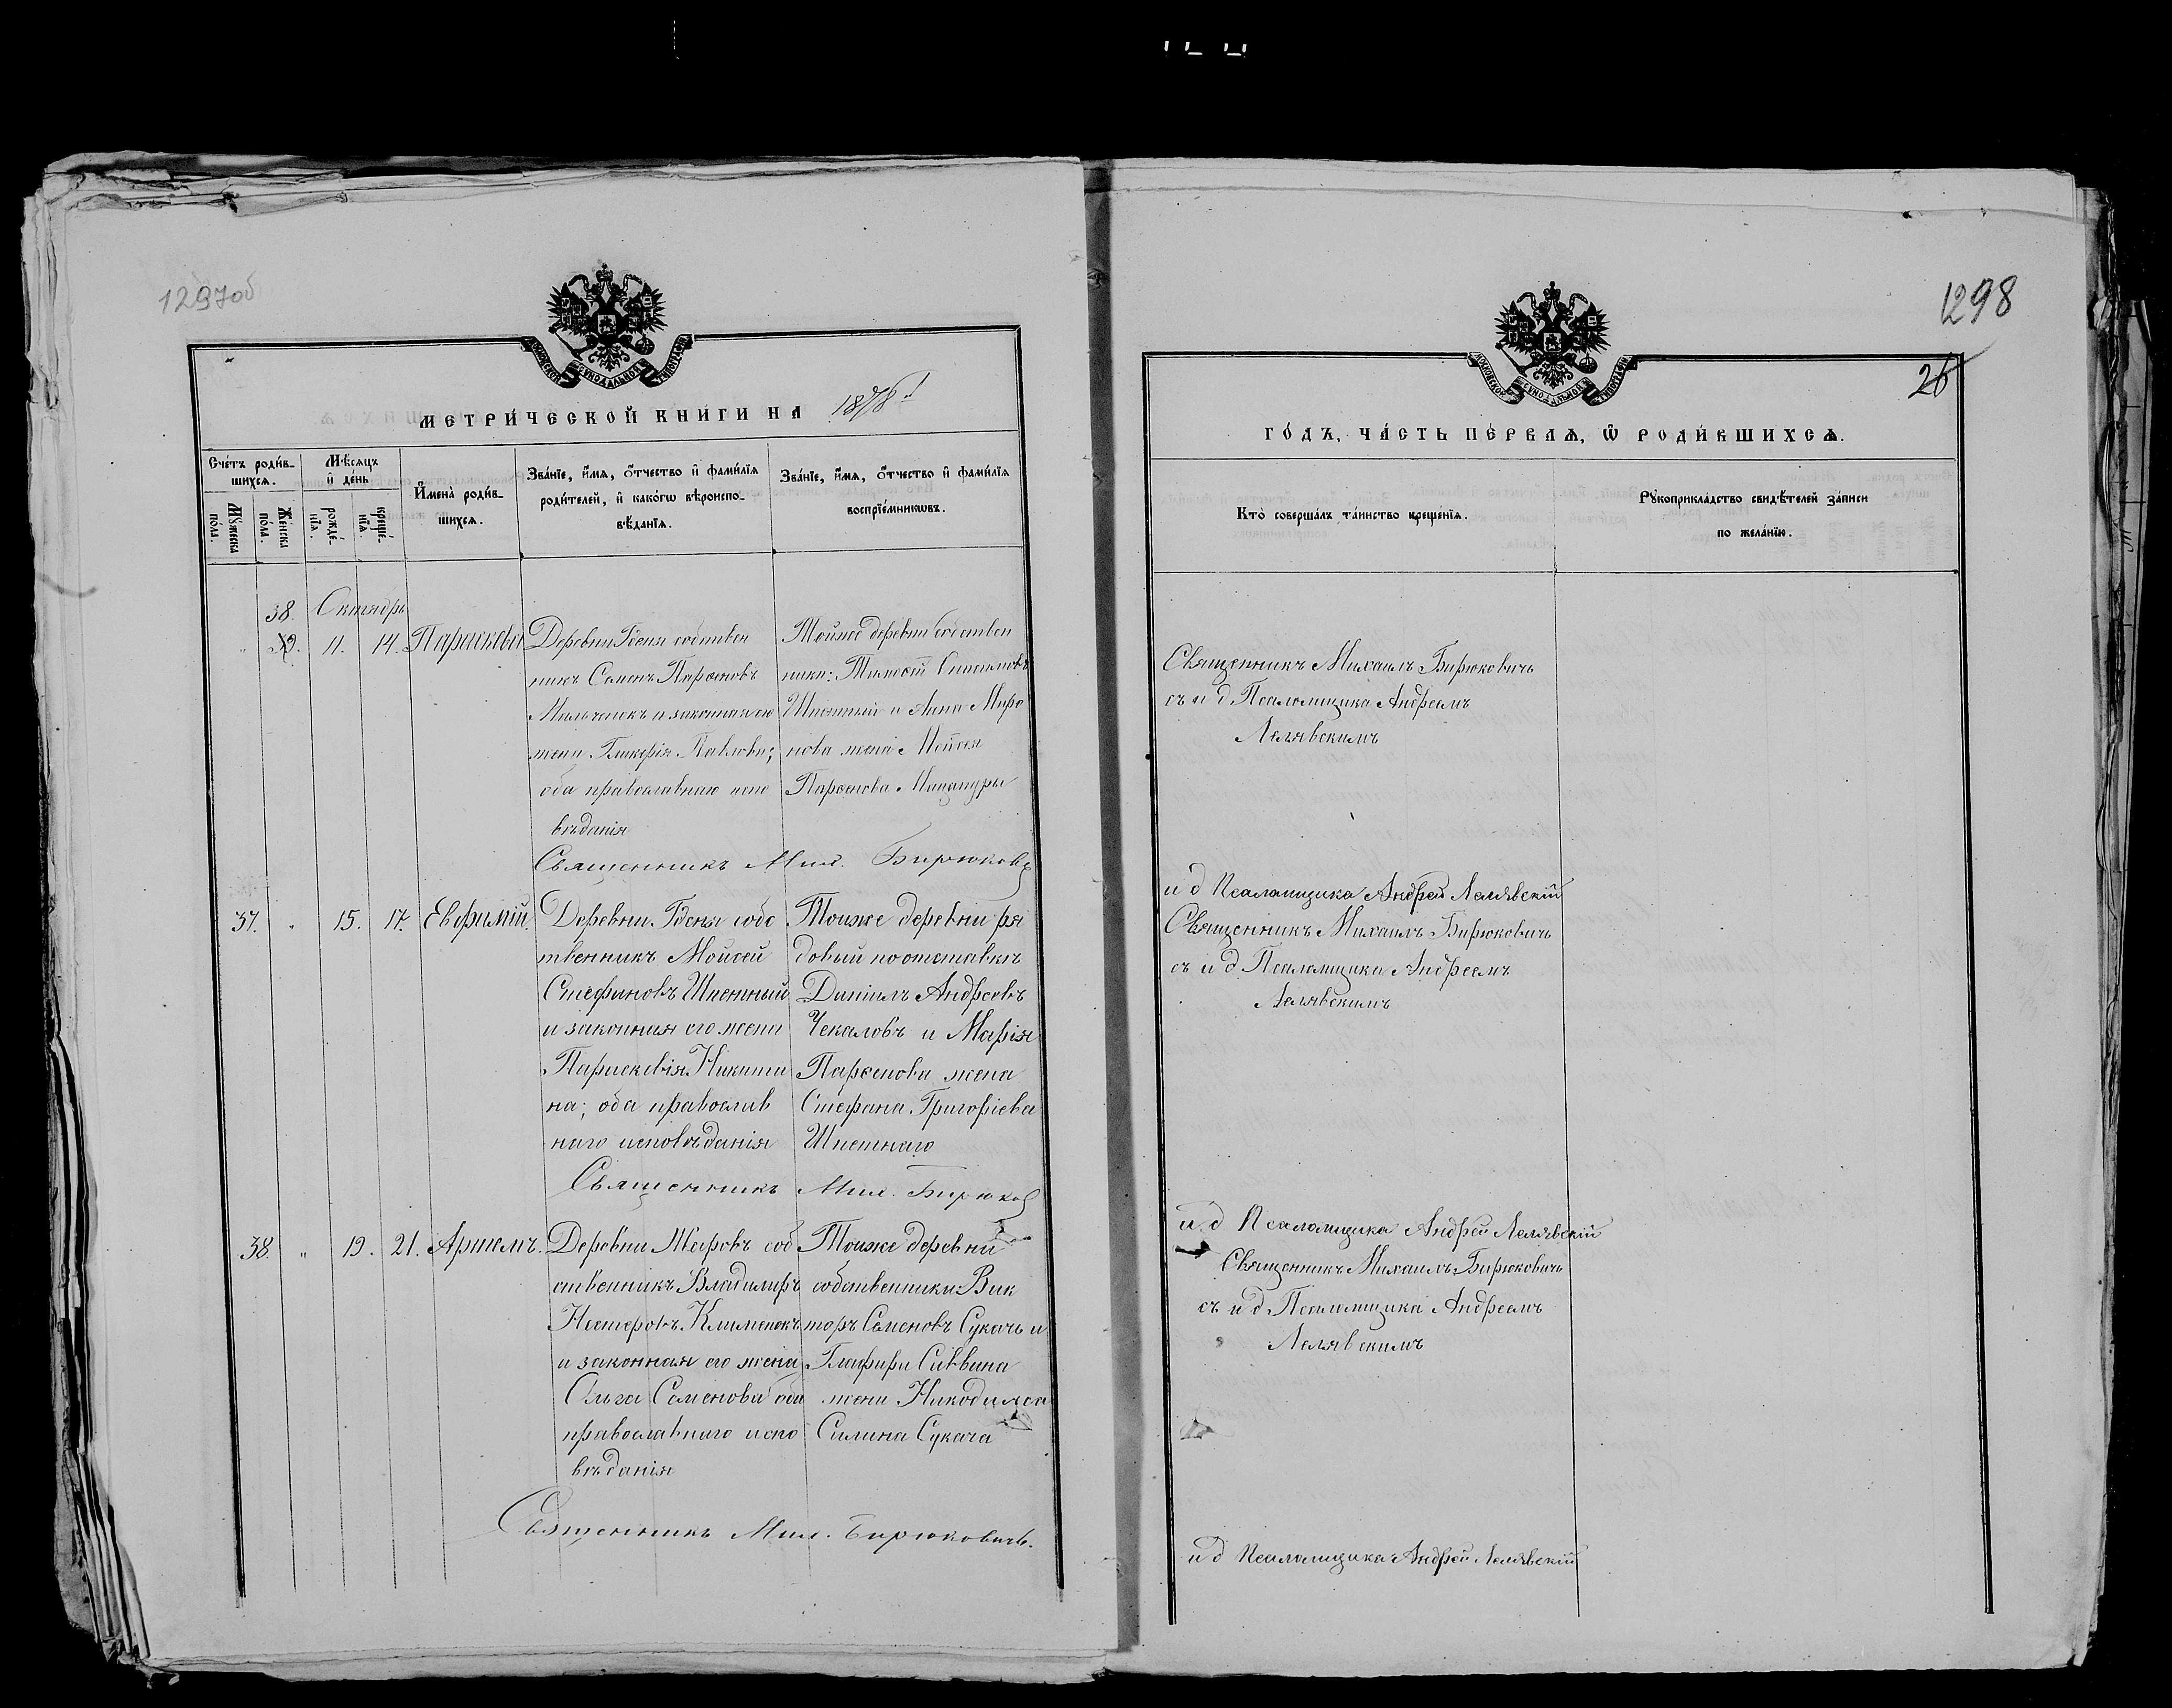 1297об
МОСКОВСКОЙ СѴНОДАЛЬНОЙ ТИПОГРАФІИ
МЕТРИ́ЧЕСКОЙ КНИ́ГИ НА 1878
Сче́тъ роди́в-
шихсѧ.
Мѣ́сѧцъ
и҆ де́нь
Мꙋ́жеска
по́ла.
Же́нска
по́ла.
рожде́-
нїѧ.
креще́-
нїѧ.
И҆мена̀ роди́в-
шихсѧ.
Зва́нїе, и҆́мѧ, ѻ҆́тчество и҆ фами́лїѧ
роди́телей, и҆ како́гѡ вѣроиспо-
вѣ́данїѧ.
Зва́нїе, и҆́мѧ, ѻ҆́тчество и҆ фами́лїѧ
воспрїе́мникѡвъ.
38. Октябрь
" 11. 14. Параскева
Деревни Гденя собствен
никъ Семенъ Парѳеновъ
Мельченокъ и законная его
жена Гликерія Павлова;
оба православнаго испо
вѣданія
Тойже деревни собствен
ники: Тимоѳей
и Анна Миро
нова жена Моисея
Парѳенова
Священникъ Мих. Бирюков
37. " 15. 17. Евфимій.
Деревни Гденя собс
твенникъ Моисей
Стефановъ Шпетный
и законная его жена
Параскевія Никити
на; оба православ
наго исповѣданія
Тойже деревни ря
довый по отставкѣ
Даніилъ Андреевъ
Чекаловъ и Марія
Парѳенова жена
Стефана Григоріева
Шпетнаго
Священникъ Мих. Бирюков
38. " 19. 21. Артемъ.
Деревни Жаровъ соб
ственникъ Владимиръ
Нестеровъ Клименокъ
и законная его жена
Ольга Семенова оба
православнаго испо
вѣданія
Тойже деревни
собственники Вик
торъ Семеновъ Сукачъ и
Глафира Саввина
жена Никодима
Силина Сукача
Священникъ Мих. Бирюковичъ.
1298
МОСКОВСКОЙ СѴНОДАЛЬНОЙ ТИПОГРАФІИ
26
ГО́ДЪ, ЧА́СТЬ ПЕ́РВАѦ, Ѡ҆ РОДИ́ВШИХСѦ.
Кто̀ соверша́лъ та́инство креще́нїѧ.
Рꙋкоприкла́дство свидѣ́телей за́писи
по жела́нїю.
Священникъ Михаилъ Бирюковичъ
съ и д Псаломщика Андреемъ
Лелявскимъ
и д Псаломщика Андрей Лелявскій
Священникъ Михаилъ Бирюковичъ
съ и д Псаломщика Андреемъ
Лелявскимъ
и. д Псаломщика Андрей Лелявскій
Священникъ Михаилъ Бирюковичъ
съ и д Псаломщика Андреемъ
Лелявскимъ
и д Псаломщика Андрей Лелявскій